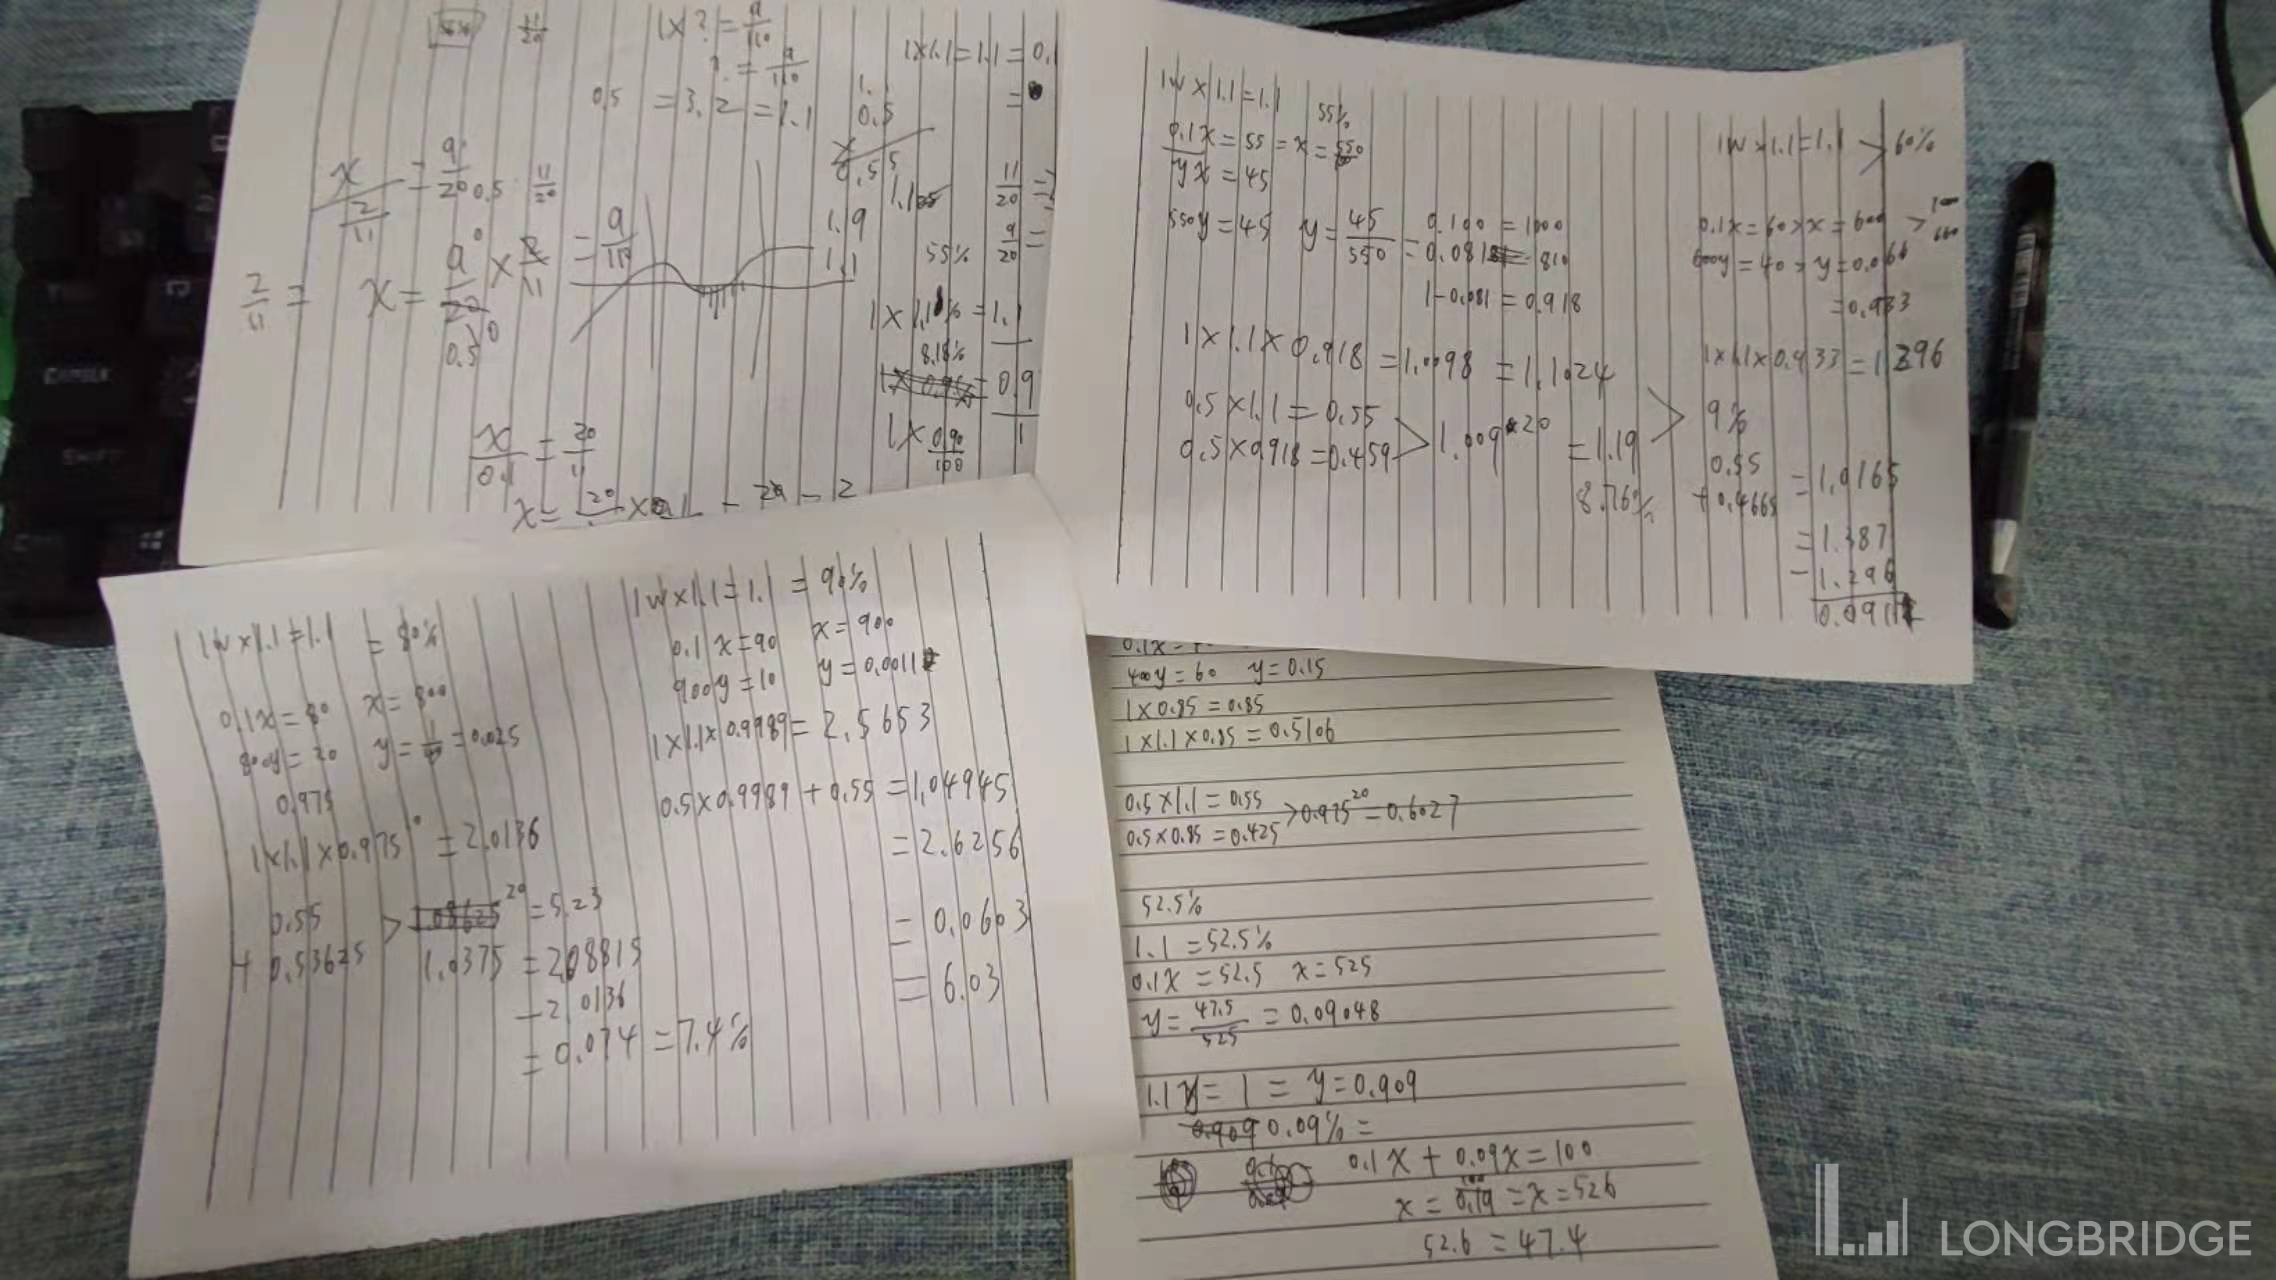 56%
11/20
1 x ? = 9/110
? = 9/110
0.5 = 3.2 = 1.1
1.1
0.5
1x1.1 = 1.1 = 0.1
x / (2/11) = 9/20
0.5
11/20
x / 0.55
11/20 =
1.9
1.1
55%
9/20 =
2/11 =
x = 9/20 x 2/11 = 9/110
0.5
1 x 1.1% = 1.1
8.18%
1 x 0.9% = 0.9
1 x 0.90/100
1
x/0.1 = 20/11
x = 20/11 x 0.1
1w x 1.1 = 1.1
55%
0.1x = 55 = x = 550
yx = 45
550y = 45 y = 45/550
0.100 = 1000
= 0.081 = 810
1-0.081 = 0.918
1 x 1.1 x 0.918 = 1.0098 = 1.1024
0.5 x 1.1 = 0.55
0.5 x 0.918 = 0.459 > 1.009^20 = 1.19
8.76%
1w x 1.1 = 1.1 > 60%
0.1x = 60 > x = 600
600y = 40 > y = 0.066
= 0.933
1x1.1x0.933 = 1.296
9%
0.55
+ 0.4665 = 1.0165
= 1.387
- 1.296
0.091
1w x 1.1 = 1.1 = 80%
0.1x = 80 x = 800
800y = 20 y = 1/40 = 0.025
0.975
1x1.1x0.975 = 2.0136
0.55
+ 0.53625 > 1.08625^20 = 5.23
1.0375 = 2.08815
- 2.0136
= 0.074 = 7.4%
1w x 1.1 = 1.1 = 90%
0.1x = 90 x = 900
900y = 10 y = 0.0011
1x1.1x0.9989 = 2.5653
0.5x0.9989 + 0.55 = 1.04945
= 2.6256
= 0.0603
= 6.03
0.1x =
400y = 60 y = 0.15
1 x 0.85 = 0.85
1 x 1.1 x 0.85 = 0.5106
0.5 x 1.1 = 0.55
0.5 x 0.85 = 0.425 > 0.975^20 = 0.6027
52.5%
1.1 = 52.5%
0.1x = 52.5 x = 525
y = 47.5/525 = 0.09048
1.1y = 1 = y = 0.909
0.909 0.09% =
0.1x + 0.09x = 100
x = 100/0.19 = x = 526
52.6 = 47.4
LONGBRIDGE